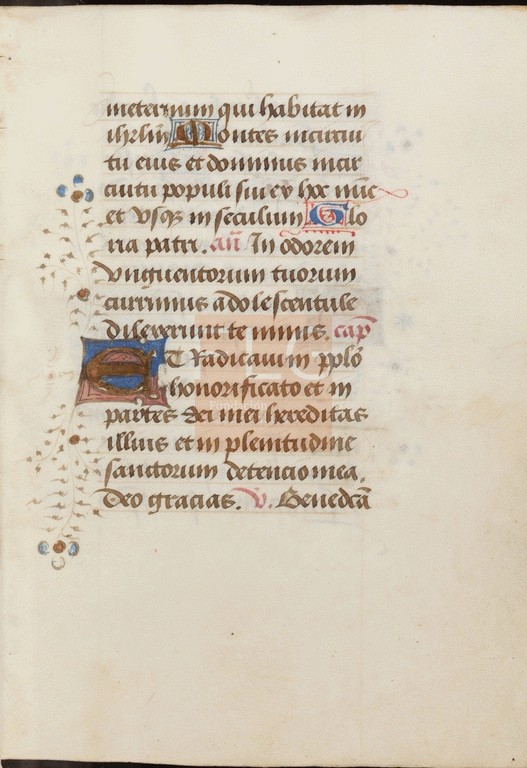 meternum qui habitat in
ihrlm Montes incircui
tu eius et dominus incir
cuitu populi sui ex hoc nūc
et vsqȝ in seculum Glo
ria patri. añ In odorem
vnguentorum tuorum
currimus adolescentule
dilexerunt te nimis. cap
ET Radicaui in pplo
honorificato et in
partes dei mei hereditas
illius et in plenitudine
sanctorum detencio mea.
Deo gracias. v. Benedcā